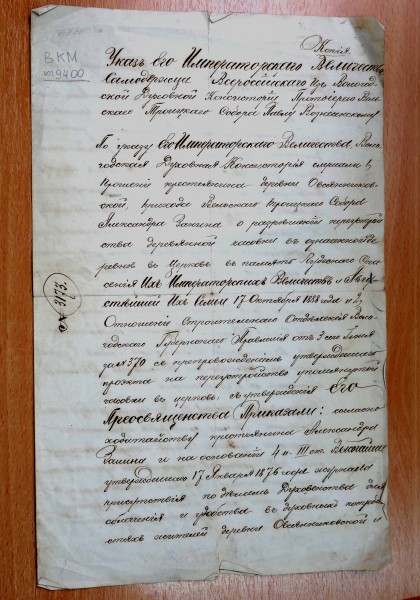 Копія.
ВКМ
9400
Указъ Его Императорскаго Величества
Самодержца Всероссійскаго Изъ Вологод-
ской Духовной Консисторіи Протоіерею Вель-
скаго Троицкаго Собора Павлу Вознесенскому
По указу Его Императорскаго Величества, Воло-
годская Духовная Консисторія слушали: 1,
Прошеніе крестьянина деревни Овсянников-
ской, прихода Вельскаго Троицкаго Собора
Александра Заніна о разрѣшеніи переустрой-
ства деревянной часовни въ означенной де-
ревнѣ въ церковь въ память чудеснаго Спа-
сенія Ихъ Императорскихъ Величествъ и Авгу-
стѣйшей Ихъ Семьи 17 Октября 1888 года и 2,
Отношеніе Строительнаго Отдѣленія Воло-
годскаго Губернскаго Правленія отъ 3 сего Іюня
за № 370 съ препровожденіемъ утвержденнаго
проекта на переустройство упомянутой
часовни въ церковь, съ утвержденія Его
Преосвященства Приказали: согласно
ходатайству крестьянина Александра
Заніна и на основаніи 4 п. III ст. Высочайше
утвержденнаго 17 Января 1876 года журнала
присутствія по дѣламъ Духовенства для
облегченія и удобства въ духовныхъ потреб-
ностяхъ жителей деревни Овсянниковской и
3173.